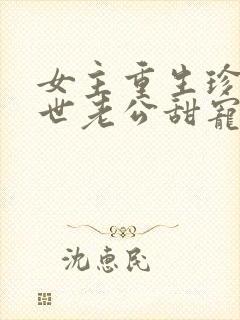 女主重生珍
世老公甜寵
沈惠民